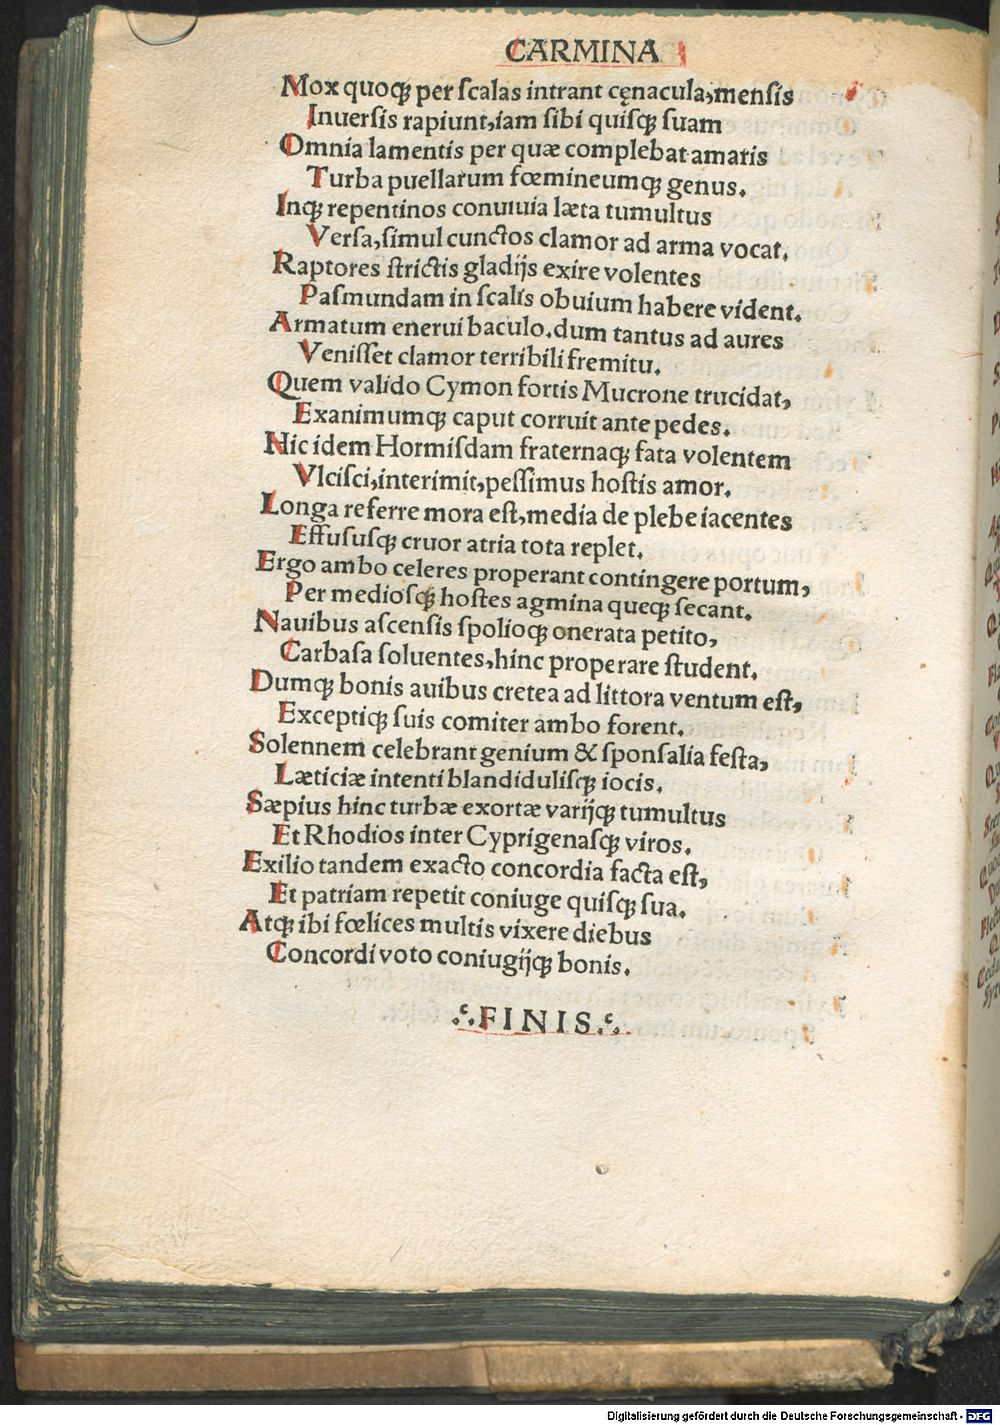 CARMINA
Mox quoqꝫ per ſcalas intrant cęnacula,menſis
Inuerſis rapiunt,iam ſibi quiſqꝫ ſuam
Omnia lamentis per quæ complebat amaris
Turba puellarum fœmineumqꝫ genus.
Inqꝫ repentinos conuiuia læta tumultus
Verſa,ſimul cunctos clamor ad arma vocat.
Raptores ſtrictis gladijs exire volentes
Paſmundam in ſcalis obuium habere vident.
Armatum enerui baculo.dum tantus ad aures
Veniſſet clamor terribili fremitu.
Quem valido Cymon fortis Mucrone trucidat,
Exanimumqꝫ caput corruit ante pedes.
Nic idem Hormiſdam fraternaqꝫ fata volentem
Vlciſci,interimit,peſſimus hoſtis amor.
Longa referre mora eſt,media de plebe iacentes
Effuſuſqꝫ cruor atria tota replet.
Ergo ambo celeres properant contingere portum,
Per medioſqꝫ hoſtes agmina queqꝫ ſecant.
Nauibus aſcenſis ſpolioqꝫ onerata petito,
Carbaſa ſoluentes,hinc properare ſtudent.
Dumqꝫ bonis auibus cretea ad littora ventum eſt,
Exceptiqꝫ ſuis comiter ambo forent.
Solennem celebrant genium & ſponſalia feſta,
Læticiæ intenti blandiduliſqꝫ iocis.
Sæpius hinc turbæ exortæ varijqꝫ tumultus
Et Rhodios inter Cyprigenaſqꝫ viros.
Exilio tandem exacto concordia facta eſt,
Et patriam repetit coniuge quiſqꝫ ſua.
Atqꝫ ibi fœlices multis vixere diebus
Concordi voto coniugijqꝫ bonis.
FINIS.
Digitalisierung gefördert durch die Deutsche Forschungsgemeinschaft - DFG